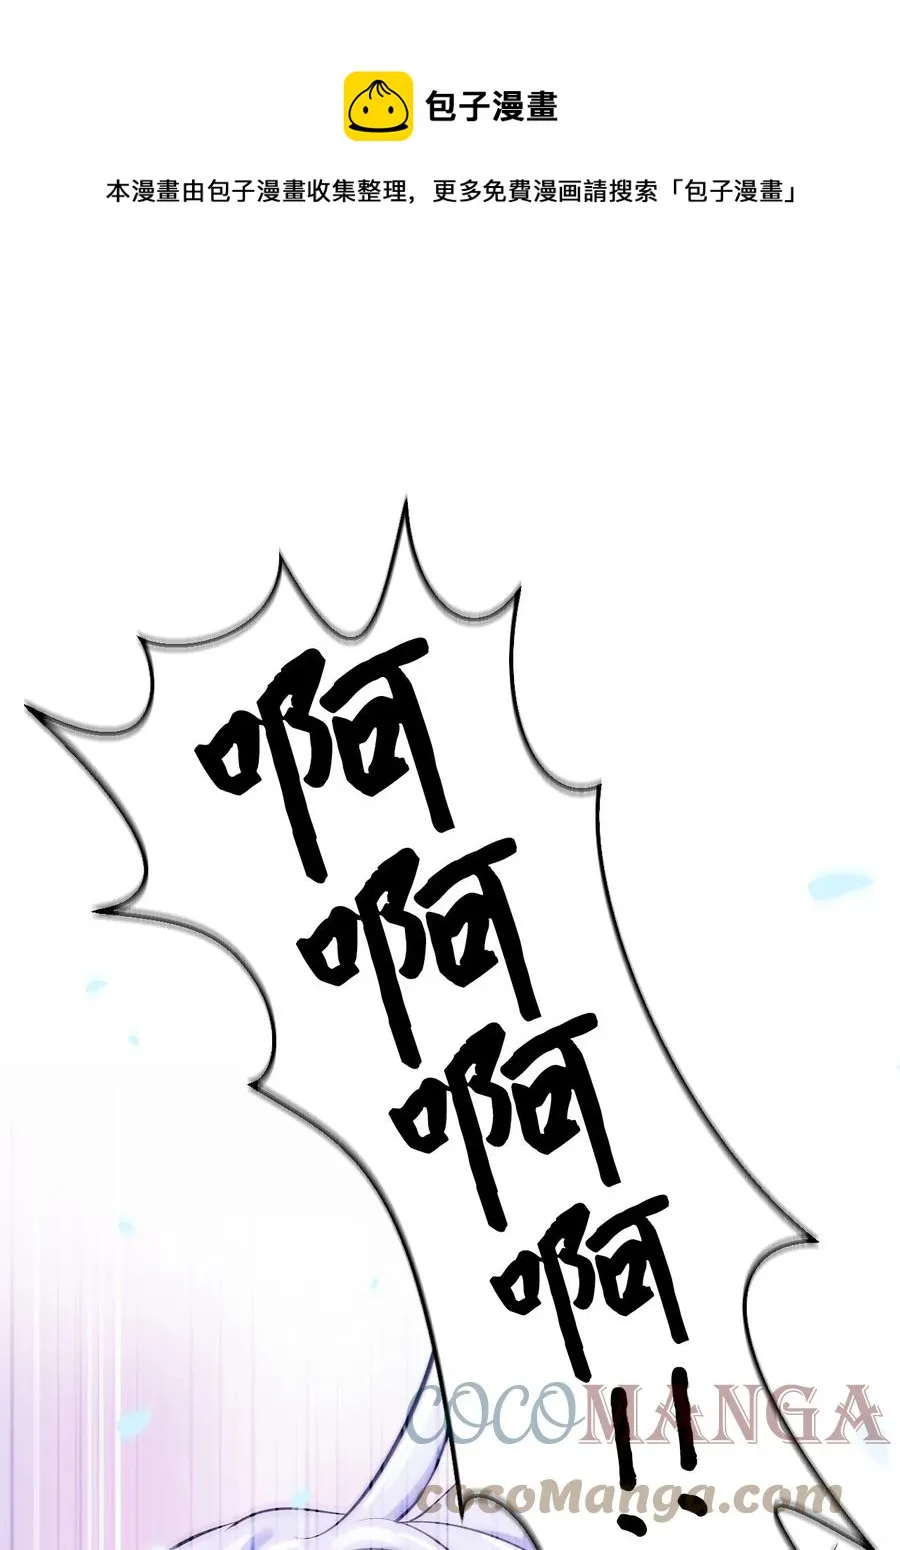 包子漫畫
本漫畫由包子漫畫收集整理，更多免費漫画請搜索「包子漫畫」
啊
啊
啊
啊
!!
COCOMANGA
cocoManga.com